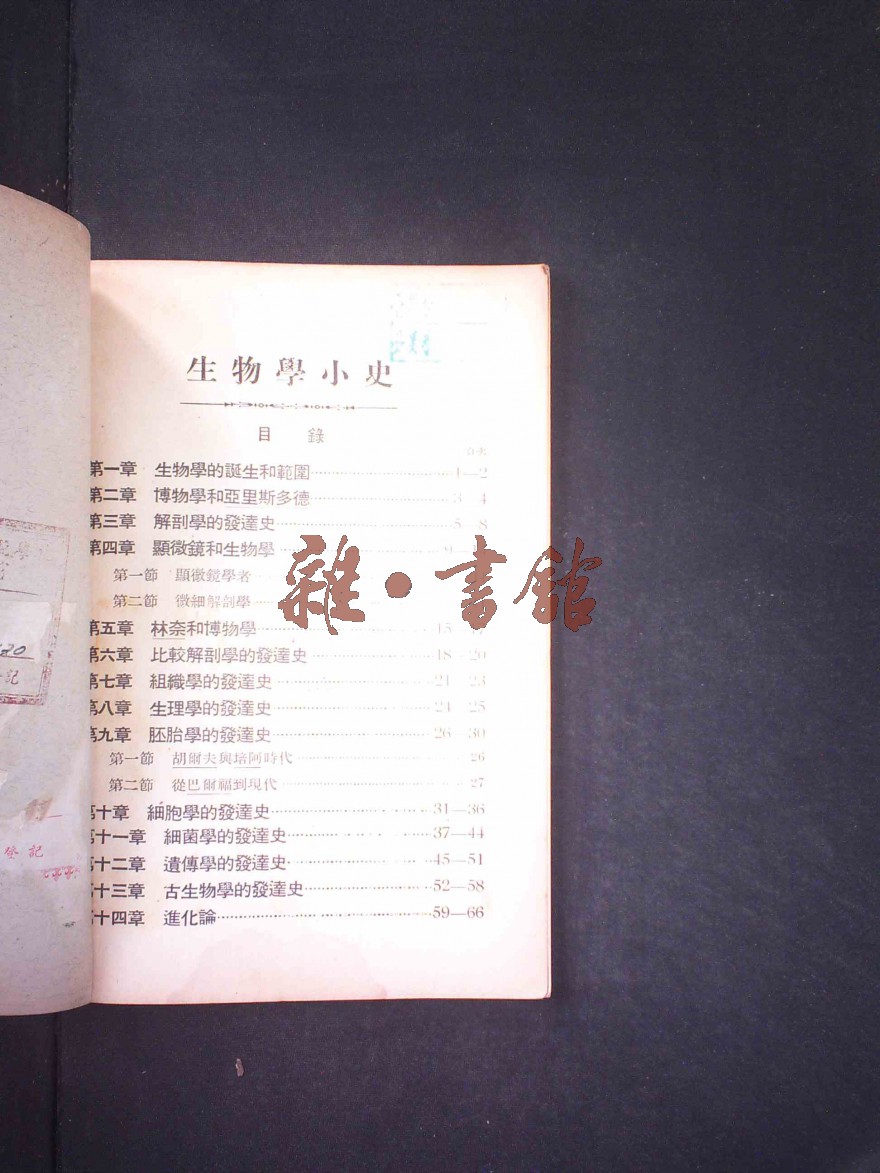 生物學小史
目錄
頁次
第一章 生物學的誕生和範圍 1—2
第二章 博物學和亞里斯多德 3—4
第三章 解剖學的發達史 5—8
第四章 顯微鏡和生物學 9
第一節 顯微鏡學者
第二節 微細解剖學
第五章 林奈和博物學 15
第六章 比較解剖學的發達史 18—20
第七章 組織學的發達史 21—23
第八章 生理學的發達史 24—25
第九章 胚胎學的發達史 26—30
第一節 胡爾夫與培阿時代 26
第二節 從巴爾福到現代 27
第十章 細胞學的發達史 31—36
第十一章 細菌學的發達史 37—44
第十二章 遺傳學的發達史 45—51
第十三章 古生物學的發達史 52—58
第十四章 進化論 59—66
雜·書館
登記